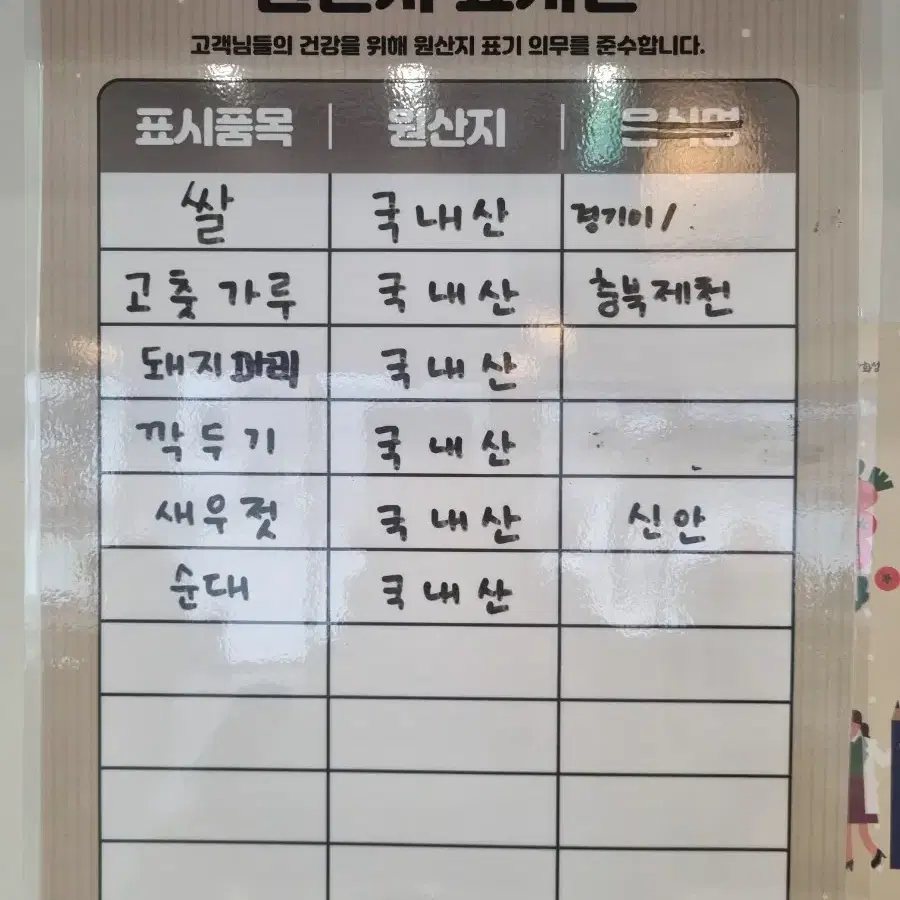 원산지 표시판
고객님들의 건강을 위해 원산지 표기 의무를 준수합니다.
표시품목 원산지 음식명
쌀 국내산
고춧가루 국내산 충북제천
돼지머리 국내산
깍두기 국내산
새우젓 국내산 신안
순대 국내산